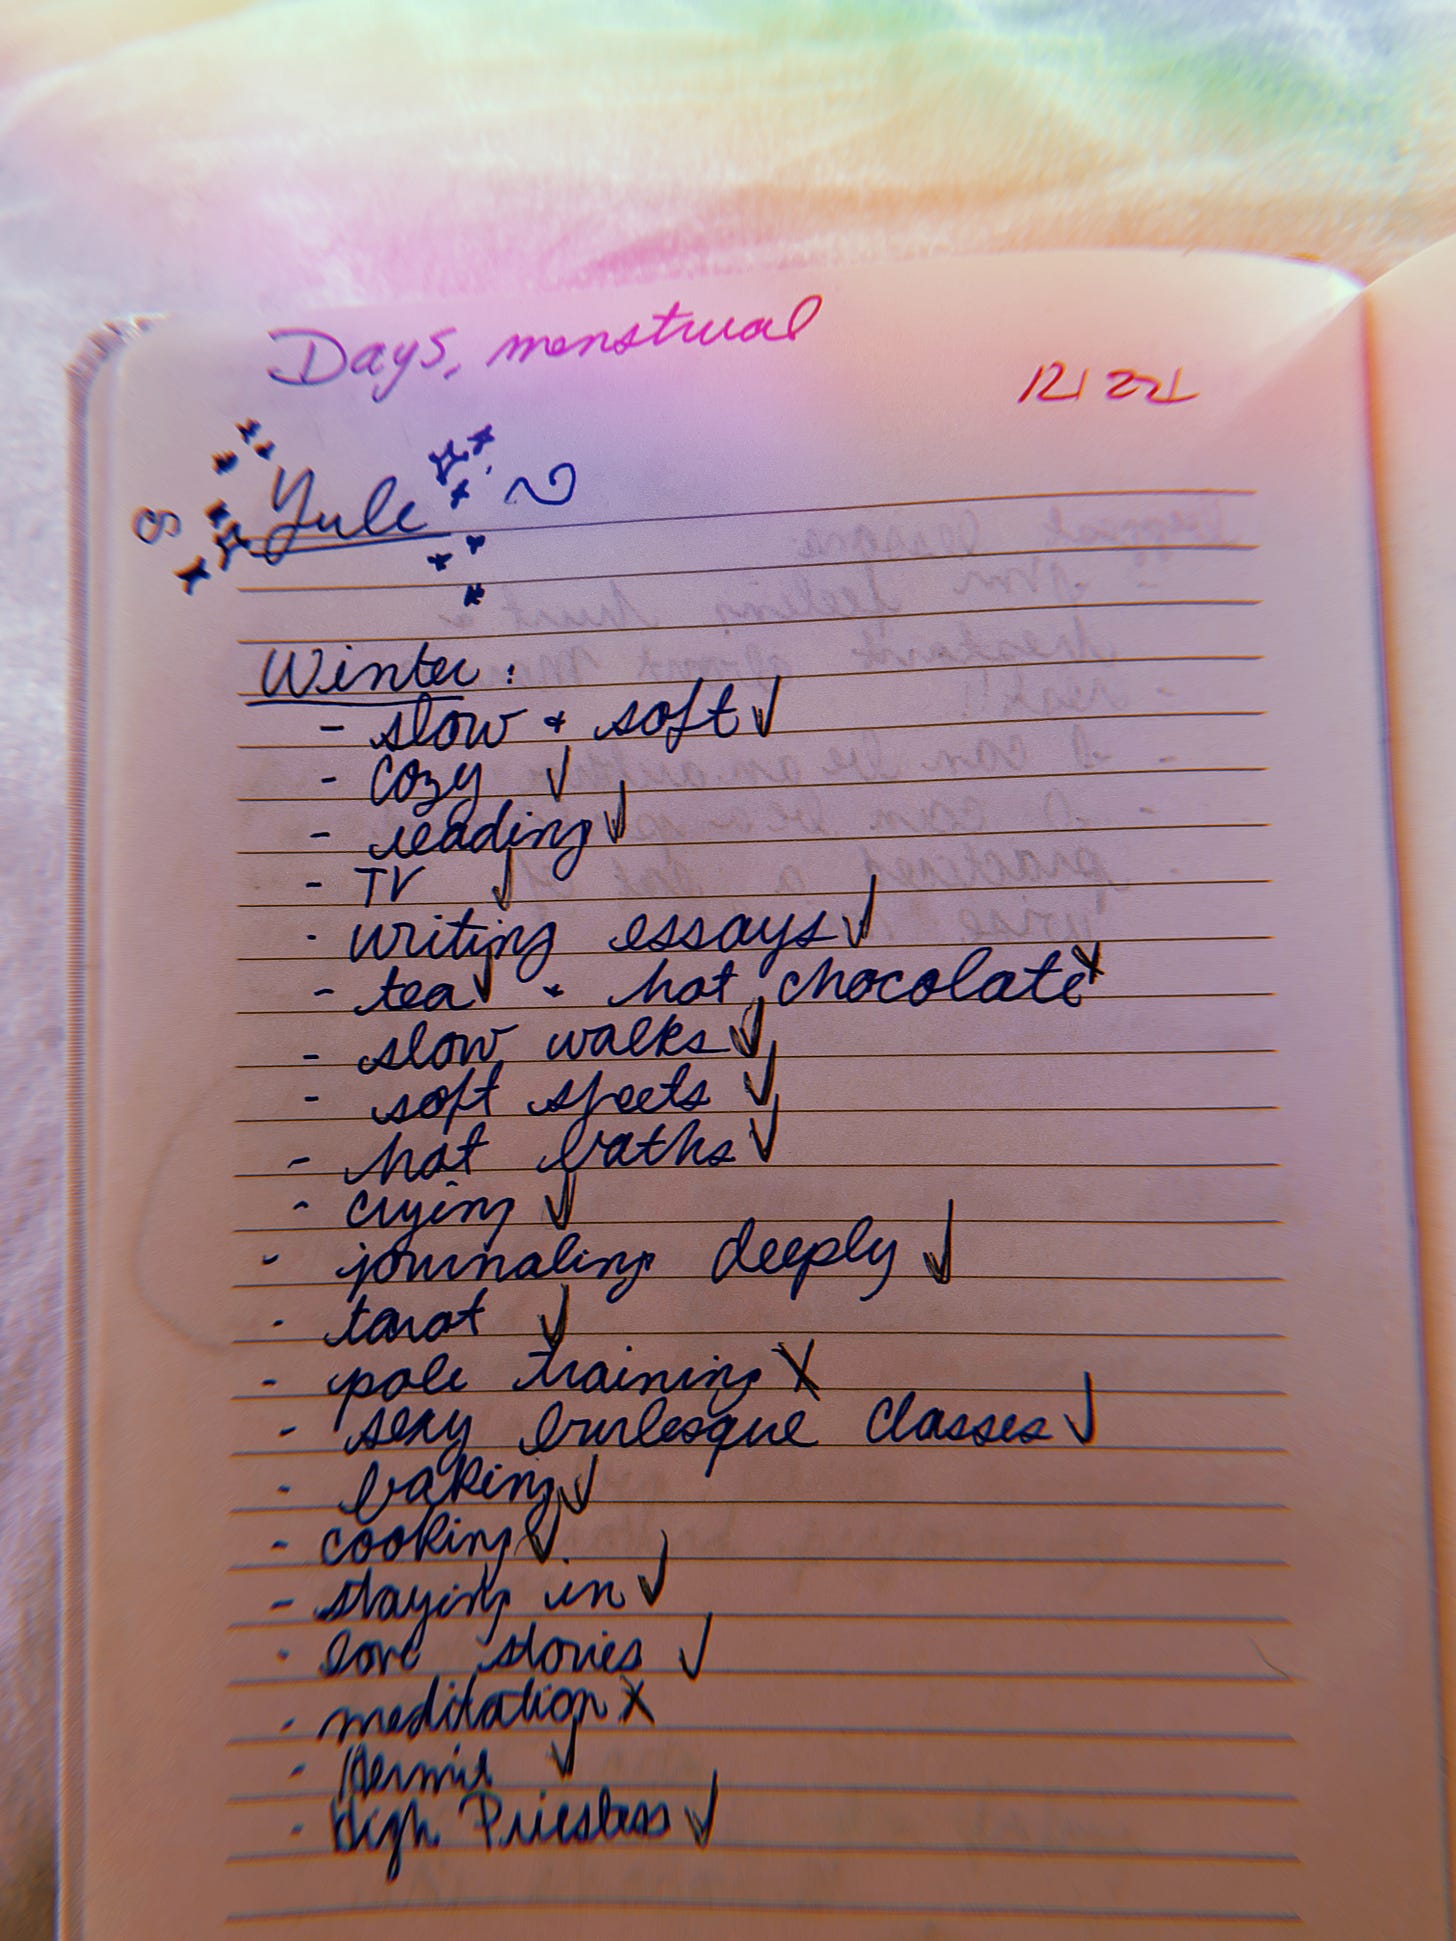 Days, menstrual
12/22/
Yule
Winter:
- slow + soft ✓
- cozy ✓
- reading ✓
- TV ✓
- writing essays ✓
- tea ✓ + hot chocolate x
- slow walks ✓
- soft sheets ✓
- hot baths ✓
- crying ✓
- journaling deeply ✓
- tarot ✓
- pole training X
- sexy burlesque classes ✓
- baking ✓
- cooking ✓
- staying in ✓
- love stories ✓
- meditation X
- Hermit ✓
- High Priestess ✓